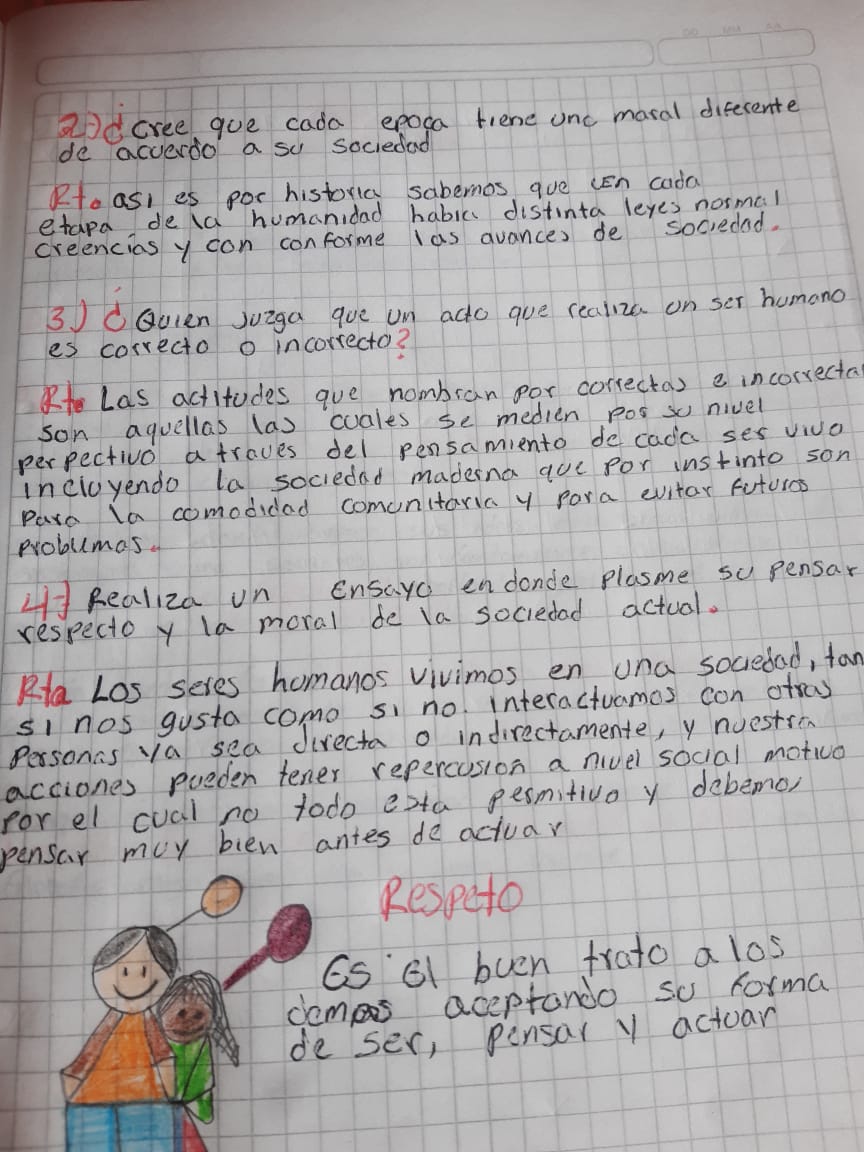 2) ¿cree que cada epoca tiene una moral diferente
de acuerdo a su sociedad
Rto asi es por historia sabemos que En cada
etapa de la humanidad habia distinta leyes normal
creencias y con conforme las avances de sociedad.
3) ¿Quien Juzga que un acto que realiza un ser humano
es correcto o incorrecto?
Rto Las actitudes que nombran por correctas e incorrecta
son aquellas las cuales se medien por su nivel
perpectivo a traves del pensamiento de cada ser vivo
incluyendo la sociedad maderna que por instinto son
para la comodidad comunitaria y para evitar futuros
problemas.
4) Realiza un Ensayo en donde plasme su pensar
respecto y la moral de la sociedad actual.
Rta Los seres humanos vivimos en una sociedad, tan
si nos gusta como si no. interactuamos con otras
Personas ya sea directa o indirectamente, y nuestra
acciones pueden tener repercusion a nivel social motivo
por el cual no todo esta permitivo y debemos
pensar muy bien antes de actuar
Respeto
Es El buen trato a los
demas aceptando su forma
de ser, pensar y actuar